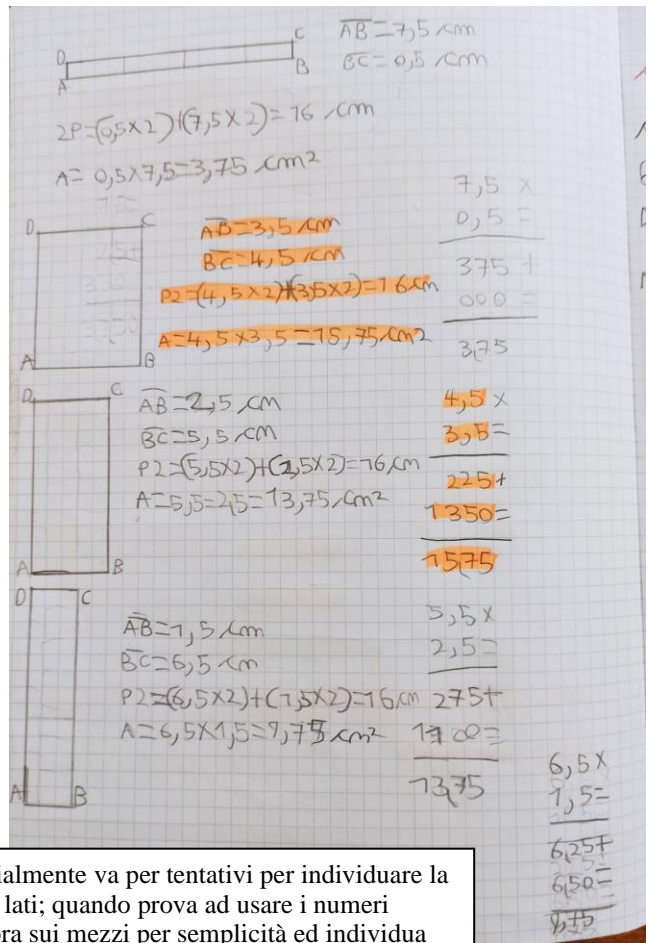 D C
A B
AB=7,5 cm
BC=0,5 cm
2P=(0,5x2)+(7,5x2)=16 cm
A= 0,5x7,5=3,75 cm²
7,5 x
0,5 =
375 +
000 =
3,75
D C
A B
AB=3,5 cm
BC=4,5 cm
P2=(4,5x2)+(3,5x2)=16cm
A=4,5x3,5=15,75 cm²
4,5 x
3,5=
225+
1350=
15,75
D C
A B
AB=2,5 cm
BC=5,5 cm
P2=(5,5x2)+(2,5x2)=16,cm
A=5,5=2,5=13,75 cm²
5,5x
2,5=
275+
1100=
13,75
D C
A B
AB=1,5 cm
BC=6,5 cm
P2=(6,5x2)+(1,5x2)=16cm
A=6,5x1,5=9,75 cm²
6,5x
1,5=
6,50=
9,75
ialmente va per tentativi per individuare la
lati; quando prova ad usare i numeri
ora sui mezzi per semplicità ed individua